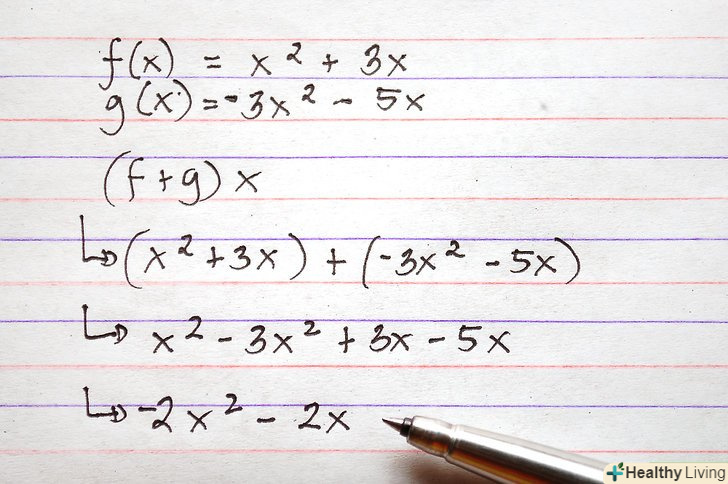 f(x) = x² + 3x
g(x) = -3x² - 5x
(f+g) x
↳ (x² + 3x) + (-3x² - 5x)
↳ x² - 3x² + 3x - 5x
↳ -2x² - 2x
Healthy Living